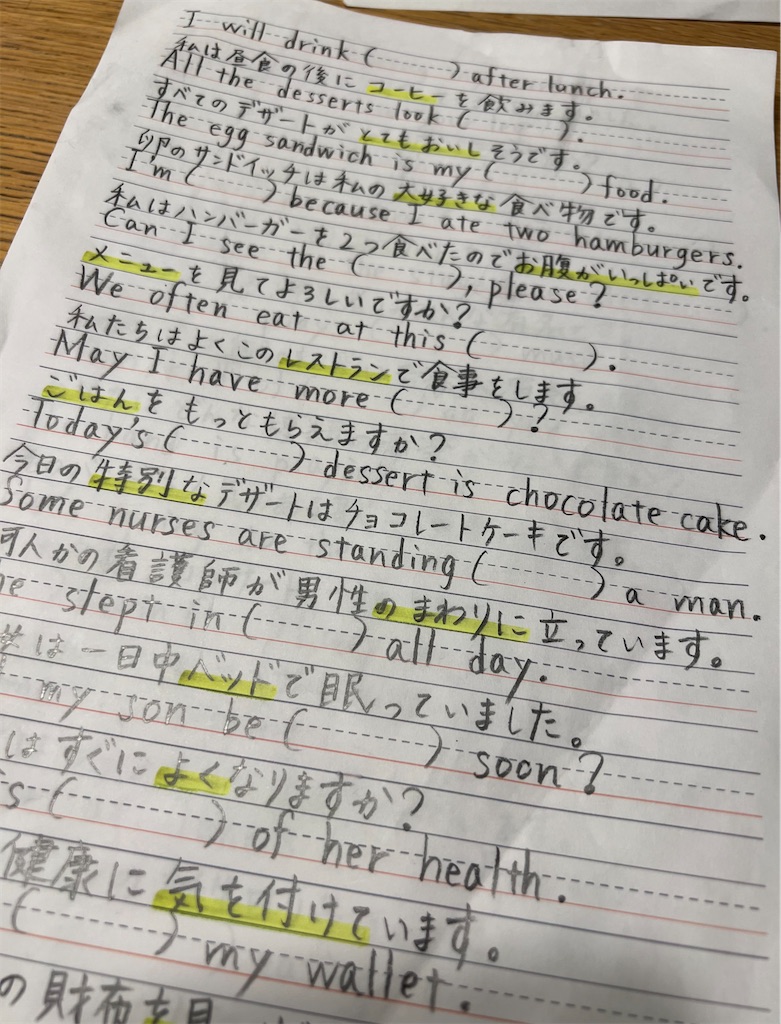 I will drink ( ) after lunch.
私は昼食の後にコーヒーを飲みます。
All the desserts look ( ).
すべてのデザートがとてもおいしそうです。
The egg sandwich is my ( ) food.
卵のサンドイッチは私の大好きな食べ物です。
I'm ( ) because I ate two hamburgers.
私はハンバーガーを2つ食べたのでお腹がいっぱいです。
Can I see the ( ), please?
メニューを見てよろしいですか?
We often eat at this ( ).
私たちはよくこのレストランで食事をします。
May I have more ( )?
ごはんをもっともらえますか?
Today's ( ) dessert is chocolate cake.
今日の特別なデザートはチョコレートケーキです。
Some nurses are standing ( ) a man.
何人かの看護師が男性のまわりに立っています。
slept in ( ) all day.
は一日中ベッドで眠っていました。
my son be ( ) soon?
はすぐによくなりますか?
( ) of her health.
健康に気を付けています。
( ) my wallet.
の財布を見